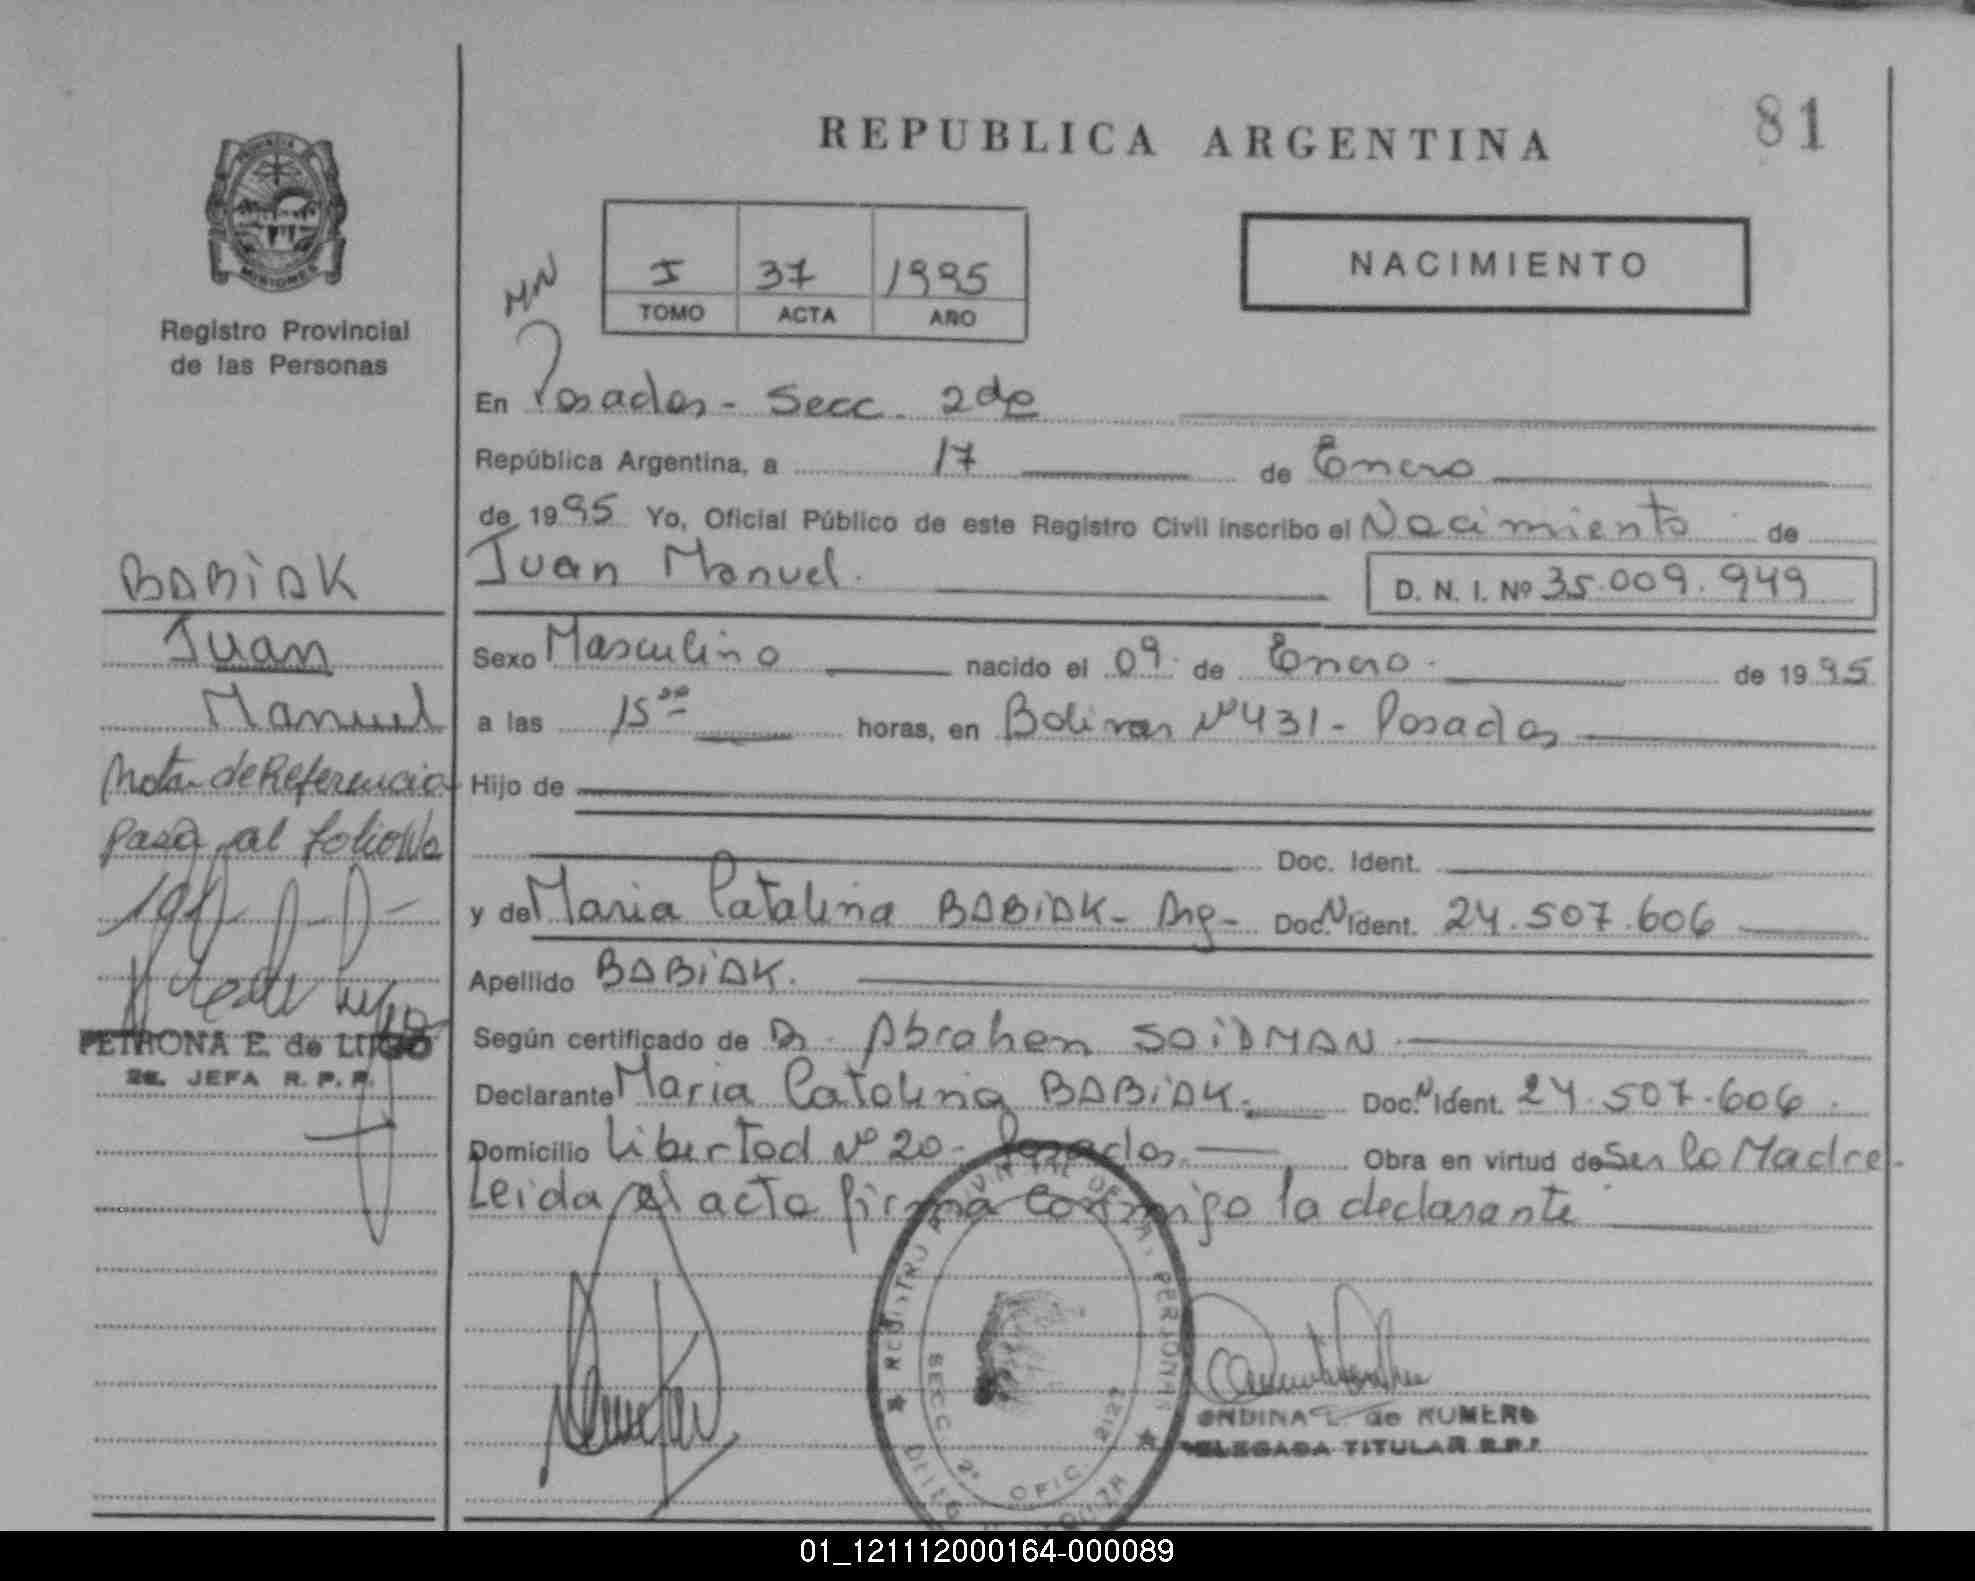 REPUBLICA ARGENTINA
81
PROVINCIA DE
MISIONES
Registro Provincial
de las Personas
NACIMIENTO
I 37 1995
TOMO ACTA AÑO
En Posadas - Secc. 2da
República Argentina, a 17 de Enero
de 1995 Yo, Oficial Público de este Registro Civil inscribo el Nacimiento de
Juan Manuel. D. N. I. Nº 35.009.949
BABiAK
Juan
Manuel
Sexo Masculino nacido el 09 de Enero de 1995
a las 15 00 horas, en Bolivar Nº 431 - Posadas
Hijo de
Doc. Ident.
y de Maria Catalina BABiAK - Arg - Doc. Nº Ident. 24.507.606
Apellido BABiAK.
Según certificado de Dr. Abraham SAiDMAN
Declarante Maria Catalina BABiAK. Doc. Nº Ident. 24.507.606
Domicilio Libertad Nº 20 - Posadas. Obra en virtud de Ser la Madre -
Leida el acta firma conmigo la declarante
Nota de Referencia
pasa al folio No
PETRONA E. de LUGO
2a. JEFA R. P. P.
REGISTRO PROVINCIAL DE LAS PERSONAS
SECC. 2º OFIC. 2122
ONDINA L. de ROMERO
DELEGADA TITULAR R.P.P.
01_121112000164-000089